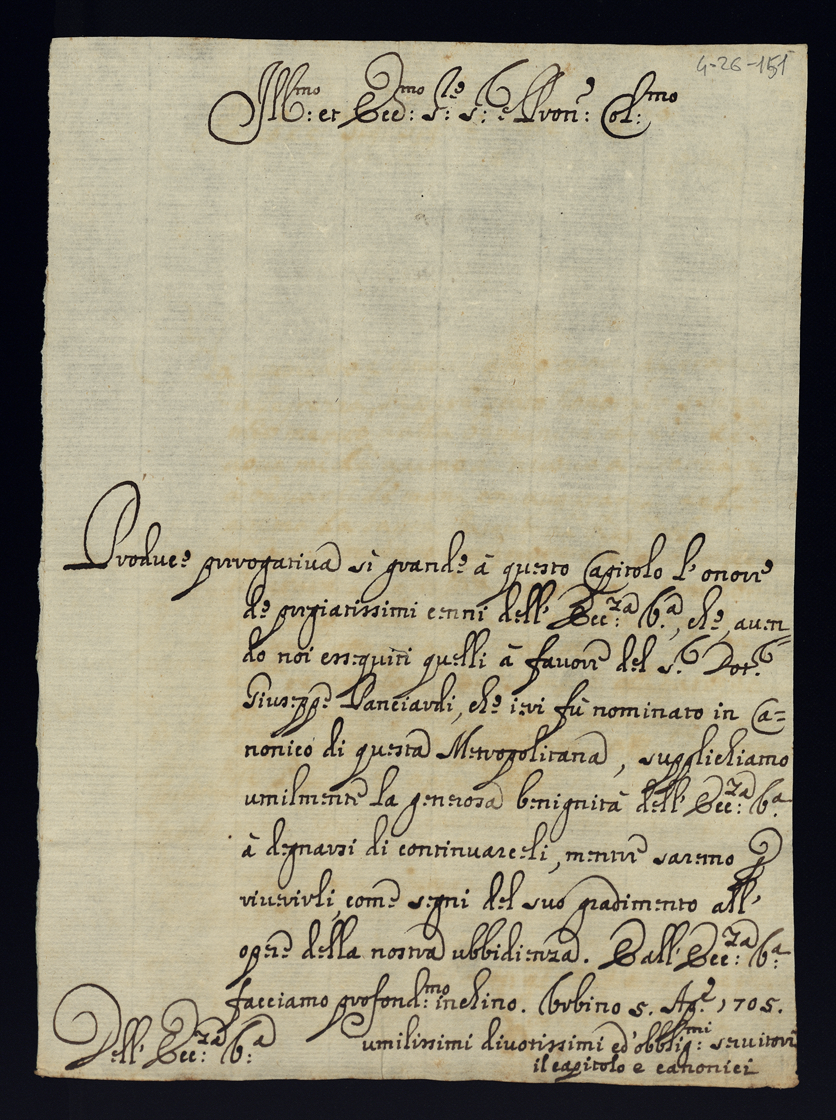 4-26-151
Ill.mo: et Ecc.mo: S.re: S.r: e Pron.e: Col.mo:
Produce prerogativa sì grande à questo Capitolo l'onore
de pregiatissimi cenni dell' Ecc:za V.a, che, auen=
do noi esseguiti quelli à favore del S.r Dot.r
Giuseppe Panciardi, che ieri fù nominato in Ca=
nonico di questa Metropolitana, supplichiamo
umilmente la generosa benignità dell' Ecc:za V.a
à degnarsi di continuarceli, mentre saremo p
riuerirli, come segni del suo gradimento all'
opere della nostra ubbidienza. E all' Ecc:za V.a:
facciamo profond:mo inchino. Vrbino 5. Ag.e 1705.
Dell' Ecc:za V:a
umilissimi diuotissimi ed' obblig:mi seruitori
il capitolo e canonici